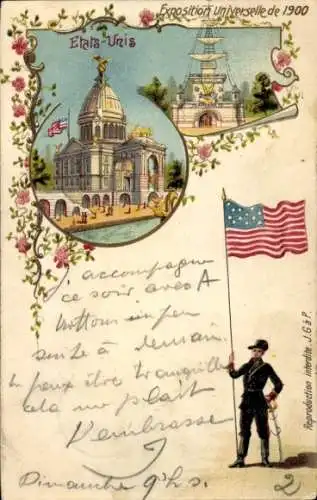 Exposition Universelle de 1900
Etats-Unis
J'accompagne
ce soir avec A
un peu
suite à demain
tu peux être tranquille
cela me plait
J'embrasse
Dimanche 9h s. 2
Reproduction interdite J.G & P.